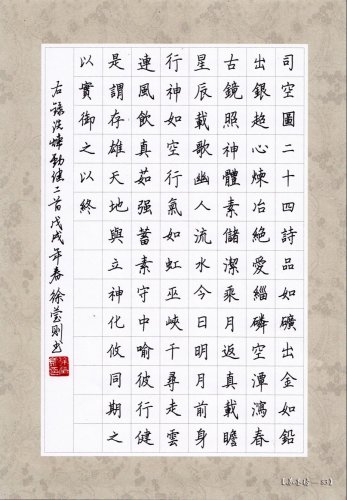 司空圖二十四詩品如礦出金如鉛
出銀超心煉冶絕愛緇磷空潭瀉春
古鏡照神體素儲潔乘月返真載瞻
星辰載歌幽人流水今日明月前身
行神如空行氣如虹巫峽千尋走雲
連風飲真茹强蓄素守中喻彼行健
是謂存雄天地與立神化攸同期之
以實御之以終
右錄洗煉勁健二首戊戌年春徐瑩則书